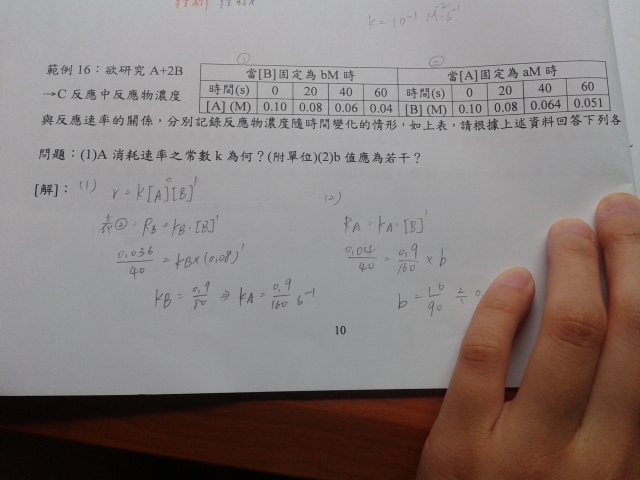 k = 10⁻¹ M⁻²s⁻¹
① ②
範例 16：欲研究 A+2B 當[B]固定為 bM 時 當[A]固定為 aM 時
→C 反應中反應物濃度 時間(s) 0 20 40 60 時間(s) 0 20 40 60
[A] (M) 0.10 0.08 0.06 0.04 [B] (M) 0.10 0.08 0.064 0.051
與反應速率的關係，分別記錄反應物濃度隨時間變化的情形，如上表，請根據上述資料回答下列各
問題：(1)A 消耗速率之常數 k 為何？(附單位)(2)b 值應為若干？
[解]：(1) r = k[A]⁰[B]¹ (2)
②：RB = kB·[B]¹ RA = kA·[B]¹
0.036/40 = kB×(0.08)¹ 0.04/40 = 0.9/160 × b
kB = 0.9/80 ⇒ kA = 0.9/160 s⁻¹ b = 16/90
10